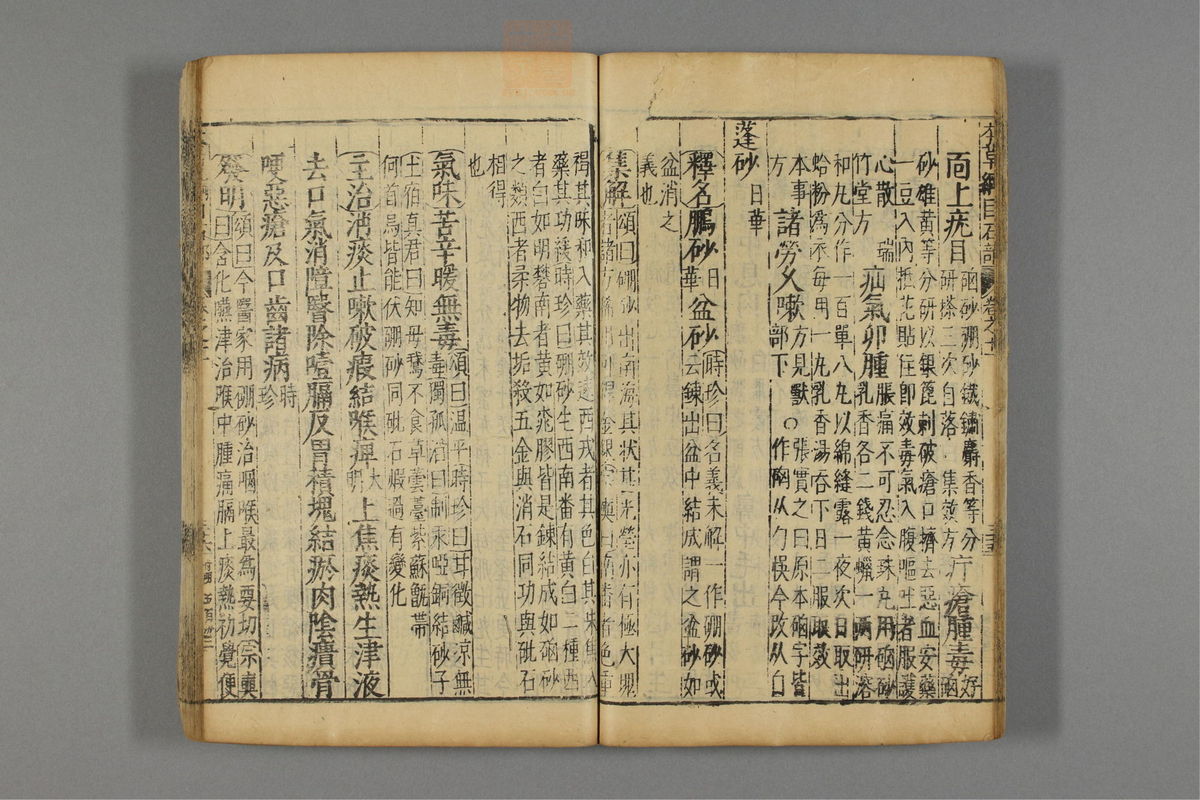 本草綱目石部 卷之十一
面上疣目 硇砂硼砂鐵鏽麝香等分
研搽三次自落集效方 疔瘡腫毒 好硇
砂雄黃等分研以銀篦刺破瘡口擠去惡血安藥
一豆入內紙花貼住即效毒氣入腹嘔吐者服護
心散 瑞竹堂方 疝氣卵腫 脹痛不可忍念珠丸用硇砂
乳香各二錢黃蠟一兩研溶
和丸分作一百單八丸以綿縫露一夜次日取出
蛤粉爲衣每用一丸乳香湯吞下日二服取效
本事方 諸勞久嗽 方見獸部下 ○張實之曰原本硇字皆
作 从勺誤今改从白
蓬砂 日華
釋名 鵬砂 日華 盆砂 時珍曰名義未解一作硼砂或
云鍊出盆中結成謂之盆砂如
盆消之義也
集解 頌曰硼砂出南海其狀甚光瑩亦有極大塊
者諸方稀用可銲金銀宗奭曰南番者色重
褐其味和入藥其效速西戎者其色白其味焦入
藥其功緩時珍曰硼砂生西南番有黃白二種西
者白如明礬南者黃如桃膠皆是鍊結成如硇砂
之類西者柔物去垢殺五金與消石同功與砒石
相得也
氣味苦辛暖無毒 頌曰溫平時珍曰甘微鹹涼無
毒獨孤滔曰制汞啞銅結砂子
土宿真君曰知母鵞不食草芸薹紫蘇甑帶
何首烏皆能伏硼砂同砒石煅過有變化
主治消痰止嗽破癥結喉痺 大明 上焦痰熱生津液
去口氣消障瞖除噎膈反胃積塊結瘀肉陰㿉骨
哽惡瘡及口齒諸病 時珍
發明 頌曰今醫家用硼砂治咽喉最爲要切宗奭
曰含化嚥津治喉中腫痛膈上痰熱初覺便